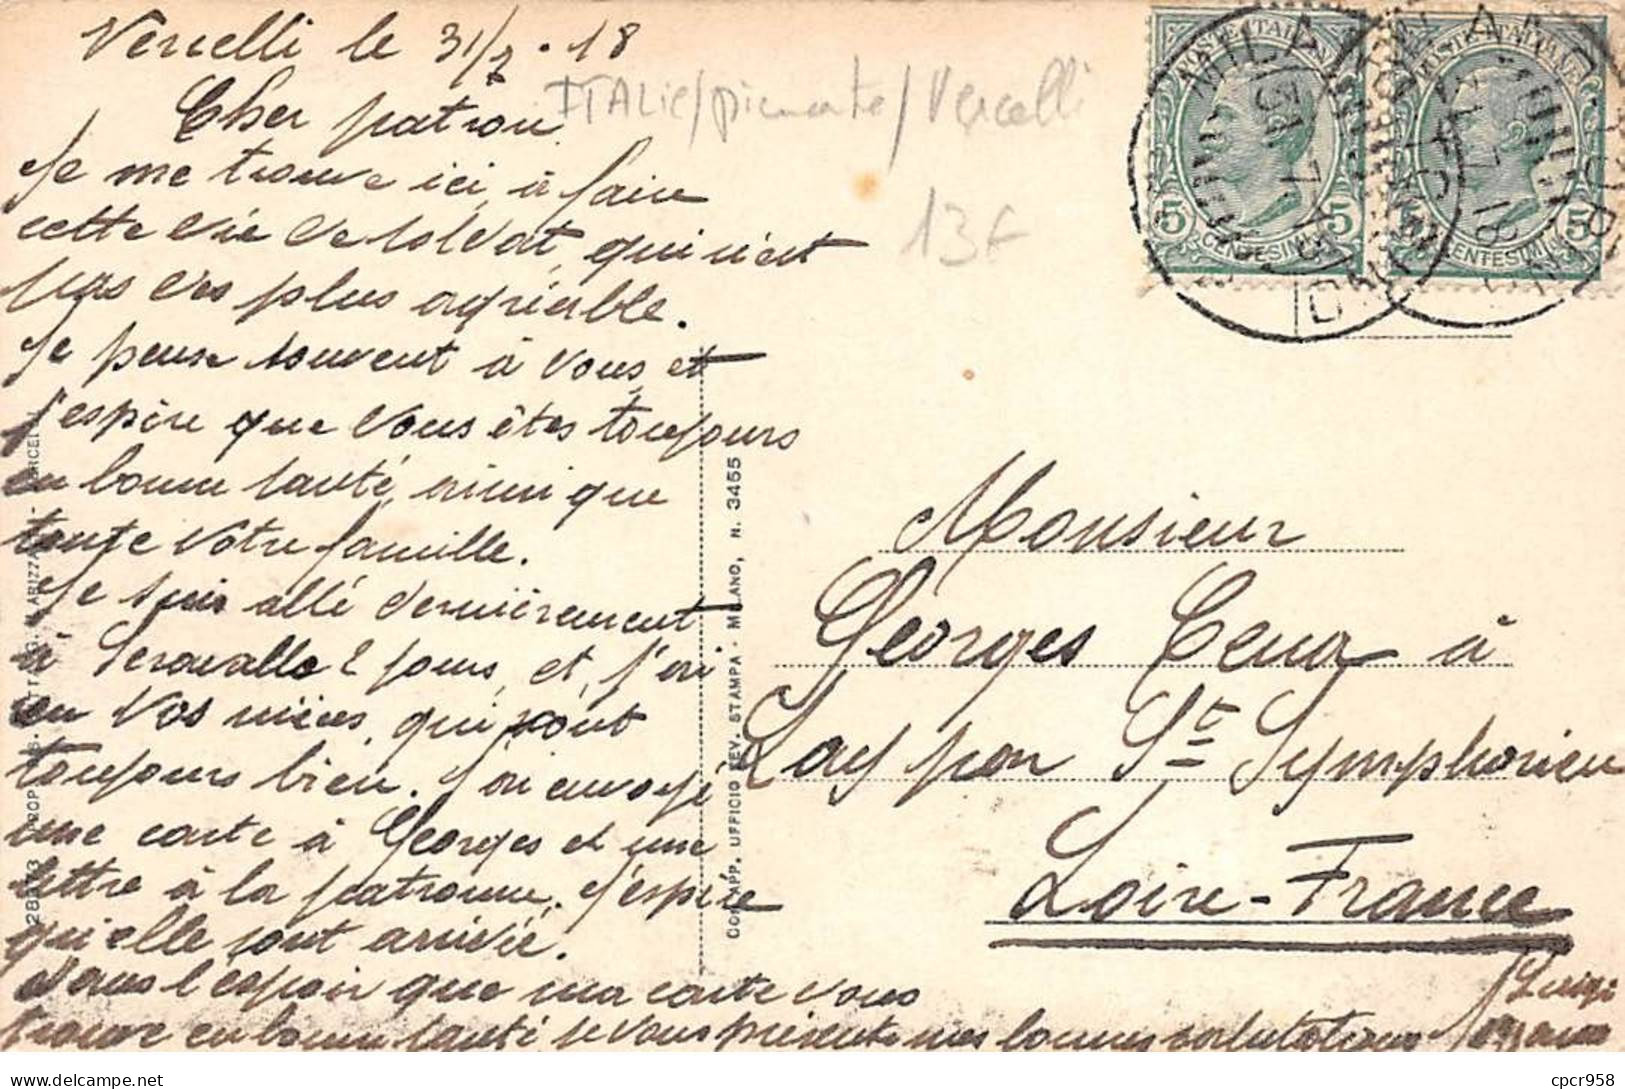 Vercelli le 31/7.18
Cher patron
Je me trouve ici, à faire
cette vie de soldat, qui n'est
pas des plus agréable.
Je pense souvent à vous, et
j'espère que vous êtes toujours
en bonne santé, ainsi que
toute votre famille.
Je suis allé dernièrement
à Seravalle 2 jours, et, j'ai
vu vos nièces, qui sont
toujours bien. J'ai envoyé
une carte à Georges et une
lettre à la patronne, j'espère
qu'elle sont arrivée.
Dans l'espoir que ma carte vous
trouve en bonne santé, je vous présente mes bonnes salutations
Luigi
ITALIE/piemonte/Vercelli
13F
POSTE ITALIANE
5 CENTESIMI 5
MILANO
31.7.18
POSTE ITALIANE
CENTESIMI 5
31.7.18
Monsieur
Georges Cena à
Lay par St Symphorien
Loire-France
APP. UFFICIO REV. STAMPA - MILANO, N. 3455
cpcr958